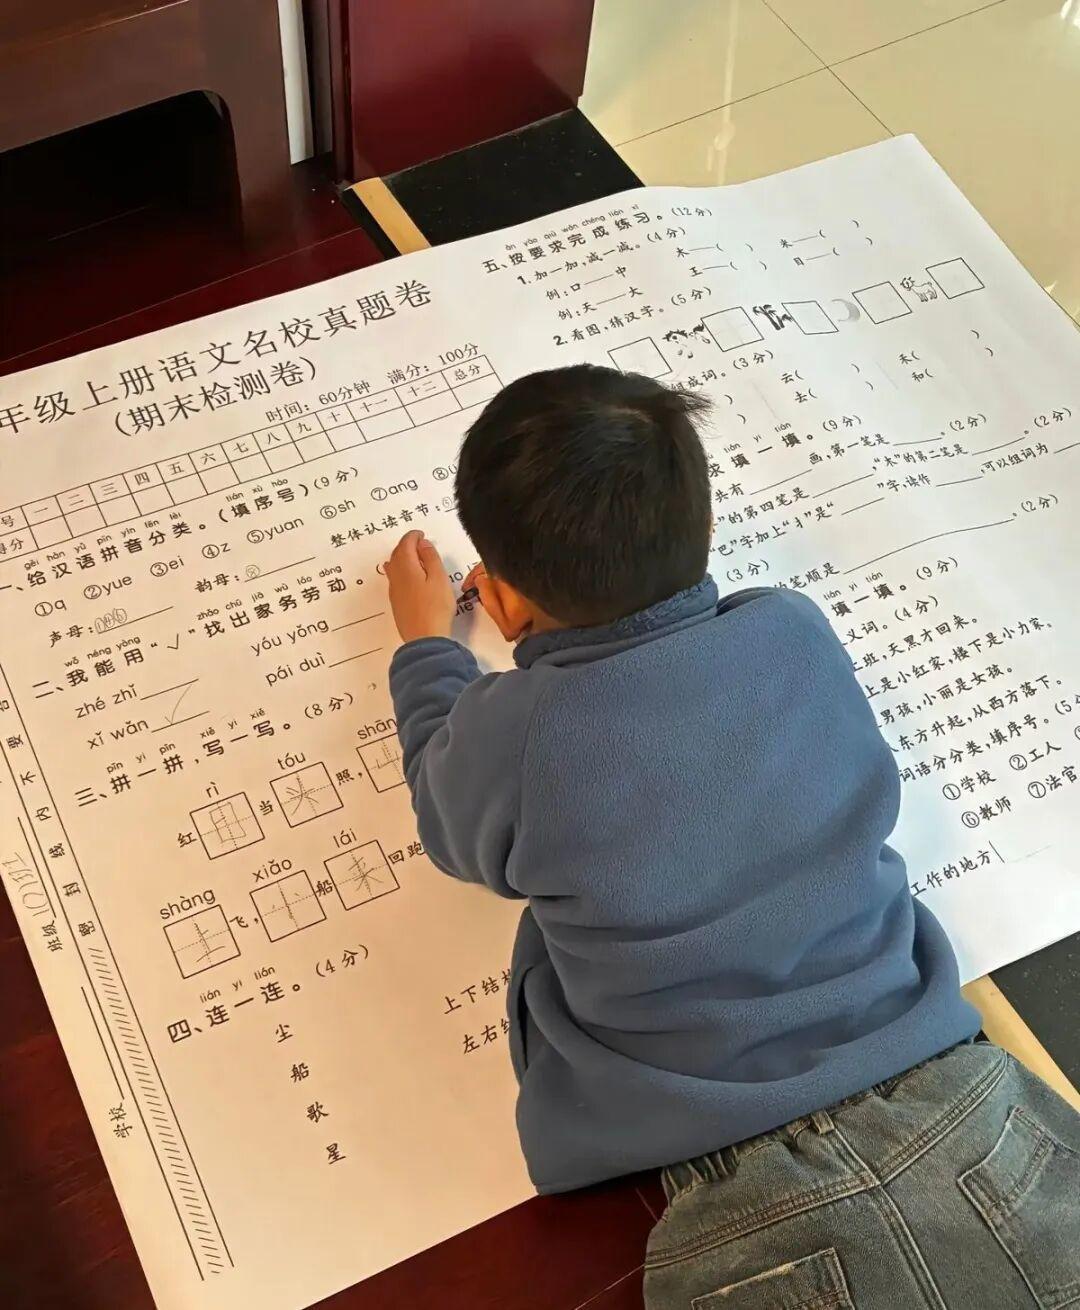 年级上册语文名校真题卷
(期末检测卷)
时间：60分钟 满分：100分
号 一 二 三 四 五 六 七 八 九 十 十一 十二 总分
得分
gěi hàn yǔ pīn yīn fēn lèi tián xù hào
一、给汉语拼音分类。(填序号)(9分)
①q ②yue ③ei ④z ⑤yuan ⑥sh ⑦ang
声母: 韵母: 整体认读音节:
wǒ néng yòng zhǎo chū jiā wù láo dòng
二、我能用“√”找出家务劳动。
zhé zhǐ yóu yǒng
xǐ wǎn √ pái duì
pīn yi pīn xiě yi xiě
三、拼一拼，写一写。(8分)
rì tóu
红日当头照，
shàng xiǎo lái
上飞，小船来回跑
lián yi lián
四、连一连。(4分)
尘
船
歌
星
上下结
左右
班级
学校
密 封 线 内 不 要
àn yāo qiú wán chéng liàn xí
五、按要求完成练习。(12分)
1.加一加，减一减。(4分)
例：口——中 木——( ) 米——( )
例：天——大 王——( ) 日——( )
2.看图，猜汉字。(5分)
组成词。(3分)
) 云( ) 禾( )
) 去( ) 和(
tián yi tián
求填一填。(9分)
共有 画，第一笔是 。(2分)
”的第四笔是 ，“木”的第二笔是 。(2分)
“巴”字加上“扌”是“ ”字，读作 ，可以组词为
的笔顺是 。(2分)
(3分)
tián yi tián
填一填。(9分)
义词。(4分)
上班，天黑才回来。
上是小红家，楼下是小力家。
男孩，小丽是女孩。
东方升起，从西方落下。
词语分分类，填序号。(5分
①学校 ②工人
⑥教师 ⑦法官
工作的地方